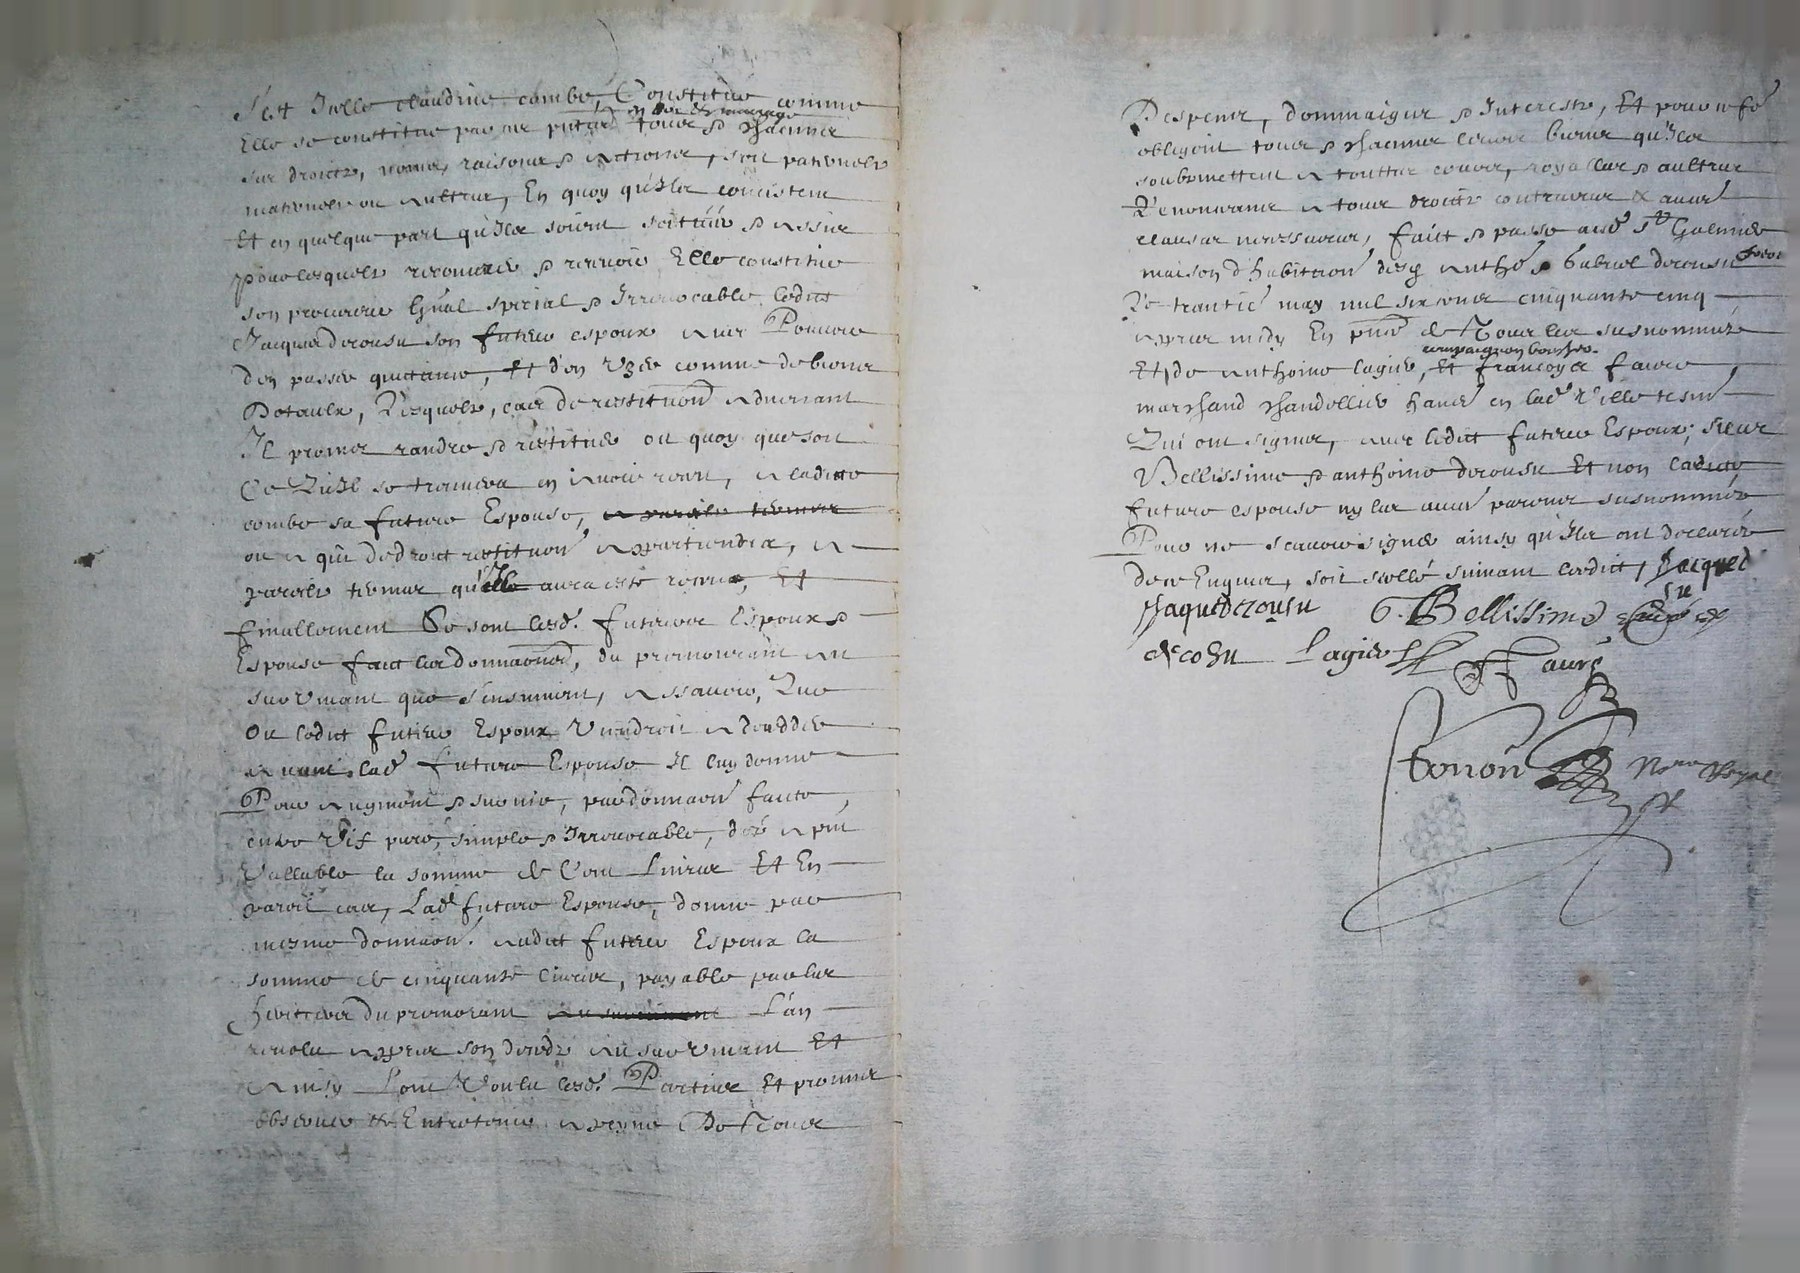 S'est Icelle claudine combe, Constitué comme
en dot & mariage
Elle se constitue par ces putes tous & chacuns
ses droictz, noms, raisons & actions, soit paternelz
maternelz ou aultres, En quoy qu'ilz concistent
Et en quelque part qu'ilz soient scitués & assis
pour lesquelz recouvrer & recevoir Elle constitue
son procureur gñal special & Irrevocable ledict
Jacques decousu son futeur espoux avec Pouvoir
d'en passer quictance, Et d'en Uzer comme de biens
Dotaulx, Lesquelz, cas de restitution advenant
Il promet randre & restituer ou quoy que soit
Ce Qu'il se treuvera en avoir receu, a ladicte
combe sa future Espouse,
ou a qui de droict restituon appartiendra, a
pareilz termes qu'il aura esté receu, Et
finallement Se sont lesd. futeurs Espoux &
Espouse faict les donnaons, du premourant au
survivant que s'ensuivent, assavoir, Que
Ou ledict futeur Espoux viendroit a decedder
avant lad future Espouse Il luy donne
Pour augment & survie, par donnaon faicte
entre vifs pure, simple & Irrevocable, des a pñt
Vallable la somme de Cent Livres Et En
pareil cas, Lad future Espouse, donne par
mesme donnaon. audict futeur Espoux la
somme de cinquante livres, payable par les
heritiers du premorant L'an
revolu appres son decedz au survivant Et
Ainsy L'ont Voulu lesd. Parties Et promis
observer & Entretenir a peyne De Tous
Despens, dommaiges & Interestz, Et pour ce fe
obligent tous & chacuns leurs biens qu'ilz
soubzmettent a touttes cours, royalles & aultres
Renonceans a tous droictz contraires & aues
clauses necessaires, faict & passé aud St Galmier
maison d'habitaon desd Anthe & Gabriel decousu
Le trantie may mil six cens cinquante cinq
appres midy En pnce de Tous les susnommés
compaignon boucher
Et de Anthoine lagier, Et francoys faure
marchand chandellier hants en lad Ville tesm
Qui ont signes, avec ledict futeur Espoux, sieur
Bellissime & anthoine decousu Et non ladicte
future espouse ny les aues parens susnommés
Pour ne scavoir signer ainsy qu'ilz ont declairé
de ce Enquis, soit scellé suivant l'edict,
Jaques decousu G. Bellissime
decosu Lagier F Faure
tonon Nore Royal